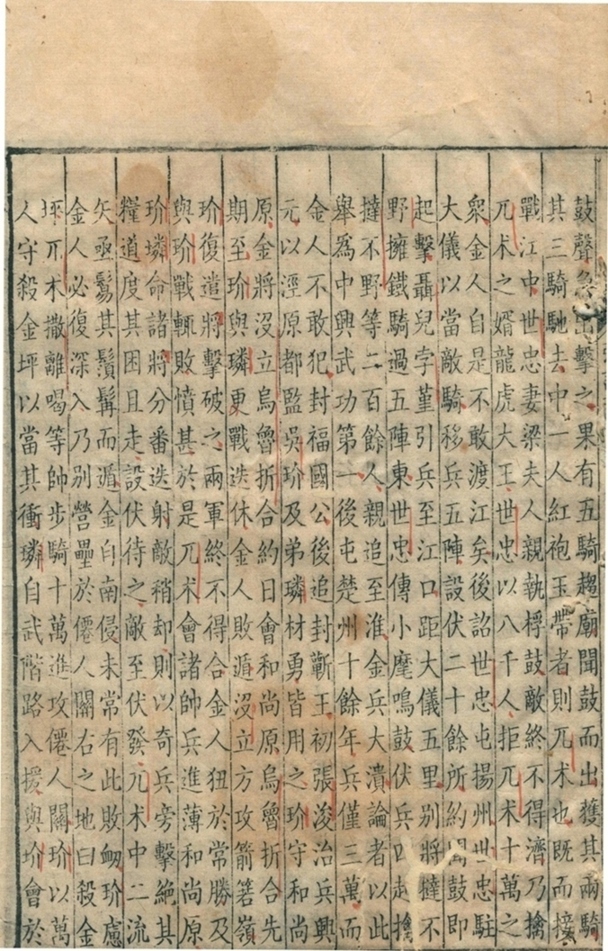 鼓聲急出擊之果有五騎趨廟聞鼓而出獲其兩騎
其三騎馳去中一人紅袍玉帶者則兀术也既而接
戰江中世忠妻梁夫人親執桴鼓敵終不得濟乃擒
兀术之婿龍虎大王世忠以八千人拒兀术十萬之
衆金人自是不敢渡江矣後詔世忠屯揚州世忠駐
大儀以當敵騎移兵五陣設伏二十餘所約聞鼓即
起擊聶兒孛堇引兵至江口距大儀五里别將撻不
野擁鐵騎過五陣東世忠傳小麾鳴鼓伏兵四起擒
撻不野等二百餘人親追至淮金兵大潰論者以此
舉為中興武功第一後屯楚州十餘年兵僅三萬而
金人不敢犯封福國公後追封蘄王初張浚治兵興
元以涇原都監吳玠及弟璘材勇皆用之玠守和尚
原金將沒立烏魯折合約日會和尚原烏魯折合先
期至玠與璘更戰迭休金人敗遁沒立方攻箭筈嶺
玠復遣將擊破之兩軍終不得合金人狃於常勝及
與玠戰輒敗憤甚於是兀术會諸帥兵進薄和尚原
玠璘命諸將分番迭射敵稍却則以奇兵旁擊絕其
糧道度其困且走設伏待之敵至伏發兀术中二流
矢亟鬄其鬚髯而遁金自南侵未常有此敗衂玠慮
金人必復深入乃别營壘於僊人關右之地曰殺金
坪兀术撒離喝等帥步騎十萬進攻僊人關玠以萬
人守殺金坪以當其衝璘自武階路入援與玠會於